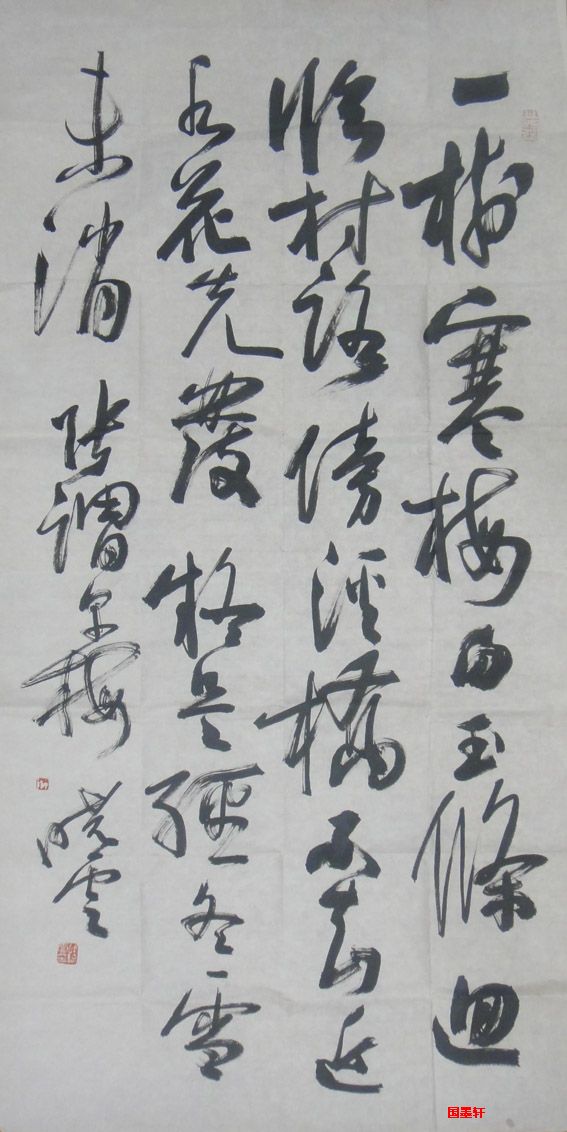 一树寒梅白玉條迴
临村路傍溪橋不知近
水花先發疑是經冬雪
未消 张謂早梅
晓雲
国墨轩